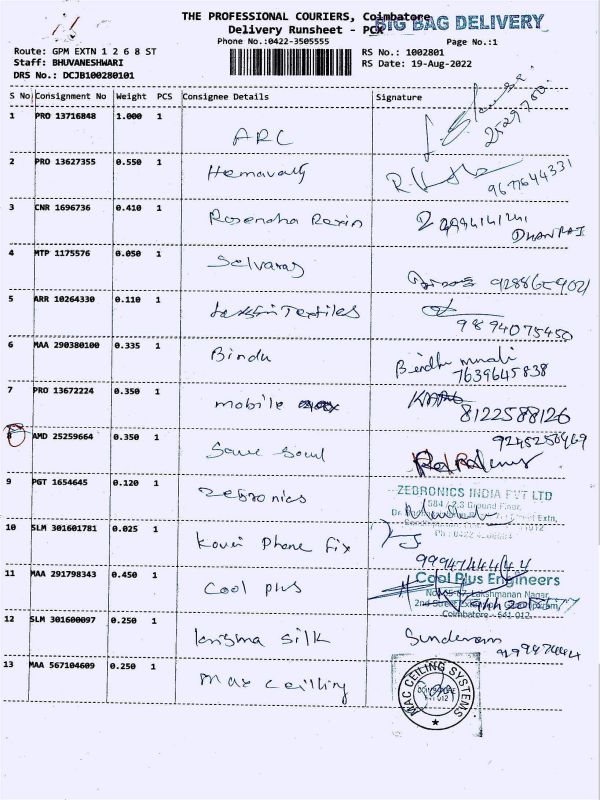 THE PROFESSIONAL COURIERS, Coimbatore
BIG BAG DELIVERY
Delivery Runsheet - PCX
Phone No.:0422-3505555
Page No.:1
Route: GPM EXTN 1 2 6 8 ST
RS No.: 1002801
Staff: BHUVANESHWARI
RS Date: 19-Aug-2022
DRS No.: DCJB100280101
S No Consignment No Weight PCS Consignee Details Signature
1 PRO 13716848 1.000 1
ARC
2 PRO 13627355 0.550 1
Hemavathy
9677644331
3 CNR 1696736 0.410 1
DHANRAJ
4 MTP 1175576 0.050 1
Selvaraj
5 ARR 10264330 0.110 1
Textiles
9894075450
6 MAA 290380100 0.335 1
Bindu
Bindhu murali
7639645838
7 PRO 13672224 0.350 1
mobile
8122588126
8 AMD 25259664 0.350 1
9245256969
9 PGT 1654645 0.120 1
Zebronics
ZEBRONICS INDIA PVT LTD
10 SLM 301601781 0.025 1
Kovai Phone fix
11 MAA 291798343 0.450 1
Cool plus
Cool Plus Engineers
No. Lakshmanan Nagar,
Coimbatore - 641 012.
12 SLM 301600097 0.250 1
Krisma silk
Sunderam
13 MAA 567104609 0.250 1
Max ceilling
MAC CEILING SYSTEMS